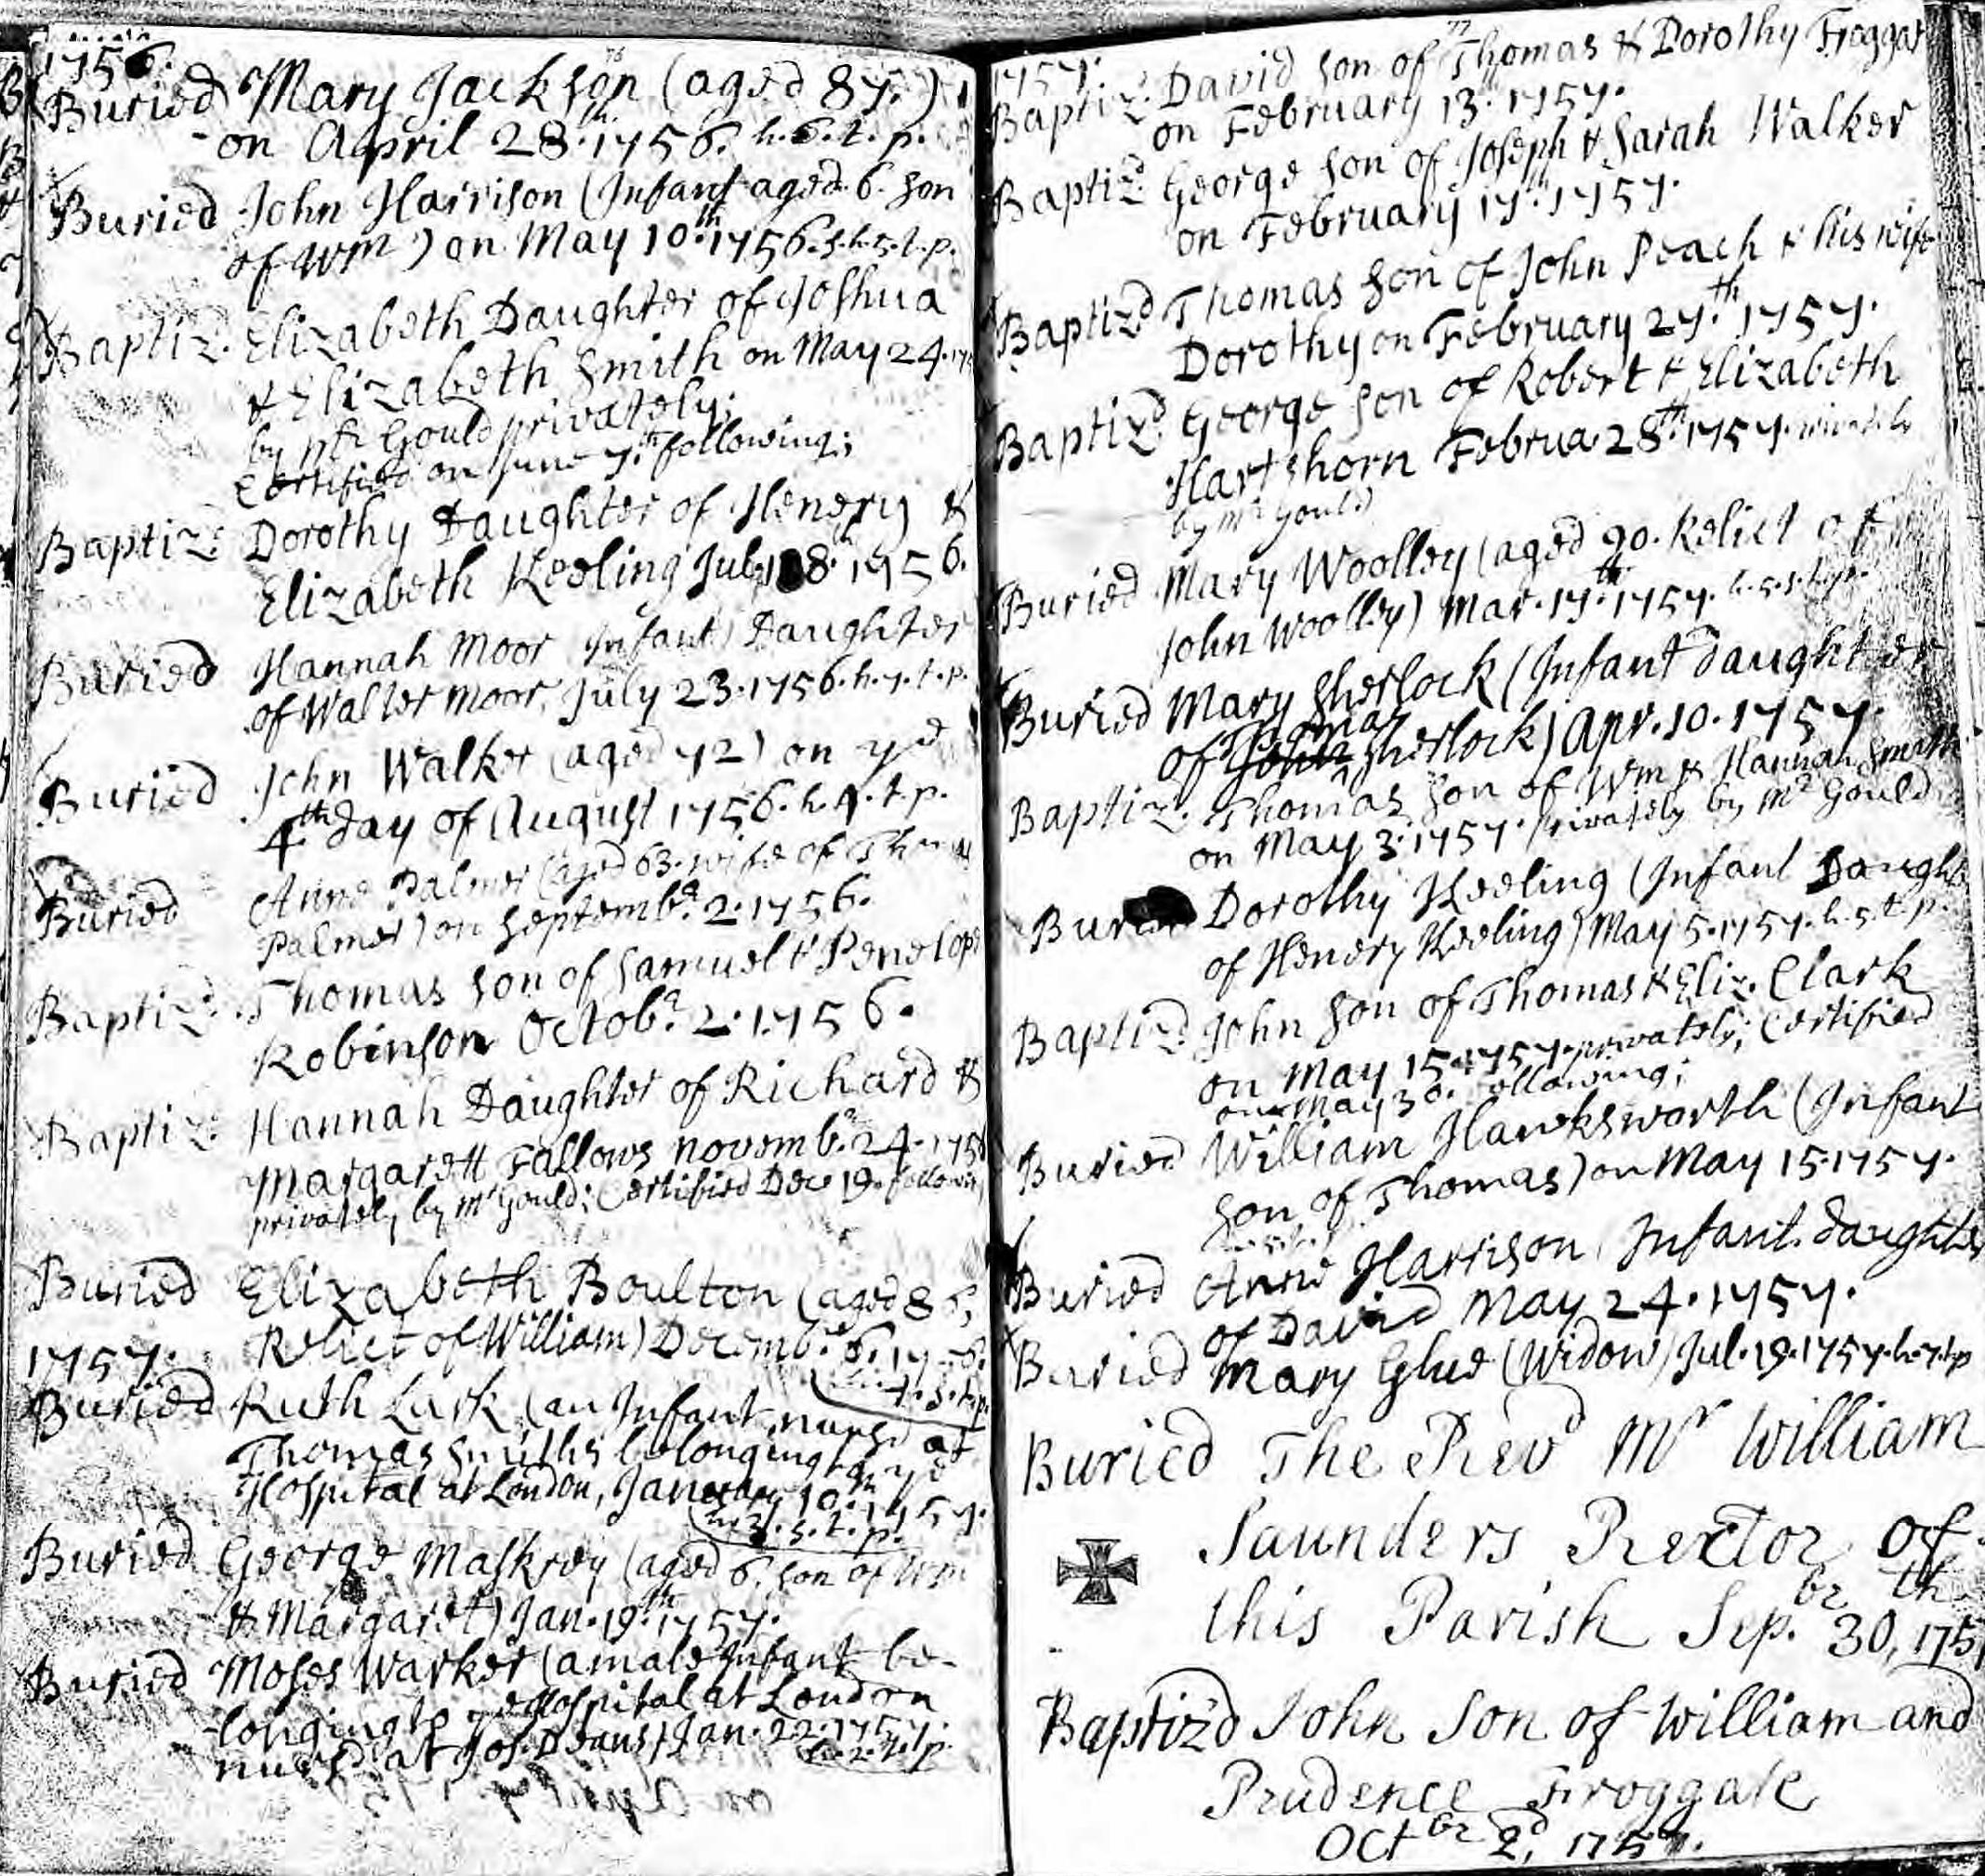 76
1756.
Buried Mary Jackson (aged 87.)
on April 28th. 1756. h. 6. t. p.
Buried John Harrison (Infant aged 6. son
of Wm) on May 10th. 1756. s. h. 5. t. p.
Baptiz'd. Elizabeth Daughter of Joshua
& Elizabeth Smith on May 24.
by Mr Gould privately;
Certified on June 7th following;
Baptiz'd Dorothy Daughter of Henery &
Elizabeth Keeling July 8th 1756.
Buried Hannah Moor Infant) Daughter
of Walter Moor, July 23. 1756. h. 7. t. p.
Buried John Walker (aged 72) on ye
4th day of August 1756. h. t. p.
Buried Anne Palmer (aged 63. wife of
Palmer) on Septembr. 2. 1756.
Baptiz'd Thomas son of Samuel & Penelope
Robinson Octobr. 2. 1756.
Baptiz'd Hannah Daughter of Richard &
Margarett Fallows Novembr. 24. 175
privately by Mr Gould; Certified Dec 19. following
Buried Elizabeth Boulton (aged 86,
Relict of William) Decembr. 6. 1756.
1757.
Buried Ruth Lark (an Infant nurs'd at
Thomas Smiths belonging to ye
Hospital at London, January 10th. 1757.
h. 3. s. t. p.
Buried George Maskrey (aged 6, son of Wm
& Margaret) Jan. 19th. 1757.
Buried Moses Warker (a male Infant be-
longing to ye Hospital at London
nurs'd at Jos. Deans) Jan. 22. 1757.
h. 2. t. p.
77
1757.
Baptiz'd. David son of Thomas & Dorothy Froggat
on February 13. 1757.
Baptiz'd George son of Joseph & Sarah Walker
on February 17th. 1757.
Baptiz'd Thomas son of John Peach & his wife
Dorothy on February 27th. 1757.
Baptiz'd George son of Robert & Elizabeth
Hartshorn Februa. 28th. 1757. privately
by Mr Gould
Buried Mary Woolley (aged 90. Relict of
John Woolley) Mar. 17th. 1757. h. 5. s. t. p.
Buried Mary Sherlock (Infant daughter
Thomas
of John Sherlock) Apr. 10. 1757.
Baptiz'd. Thomas son of Wm & Hannah Smith
on May 3. 1757. privately by Mr Gould
Buried Dorothy Keeling (Infant Daught
of Henery Keeling) May 5. 1757. h. 5. t. p.
Baptiz'd John son of Thomas & Eliz. Clark
on May 15. 1757. privately; Certified
on May 30. following;
Buried William Hawksworth (Infant
son of Thomas) on May 15. 1757.
Buried Anne Harrison Infant. daughter
of David May 24. 1757.
Buried Mary Glue (Widow) Jul. 19. 1757. h. 7. t. p
Buried The Revd Mr William
Saunders Rector of
this Parish Sep.br 30th, 175
Baptiz'd John Son of William and
Prudence Froggate
Octbr 2d, 1757.